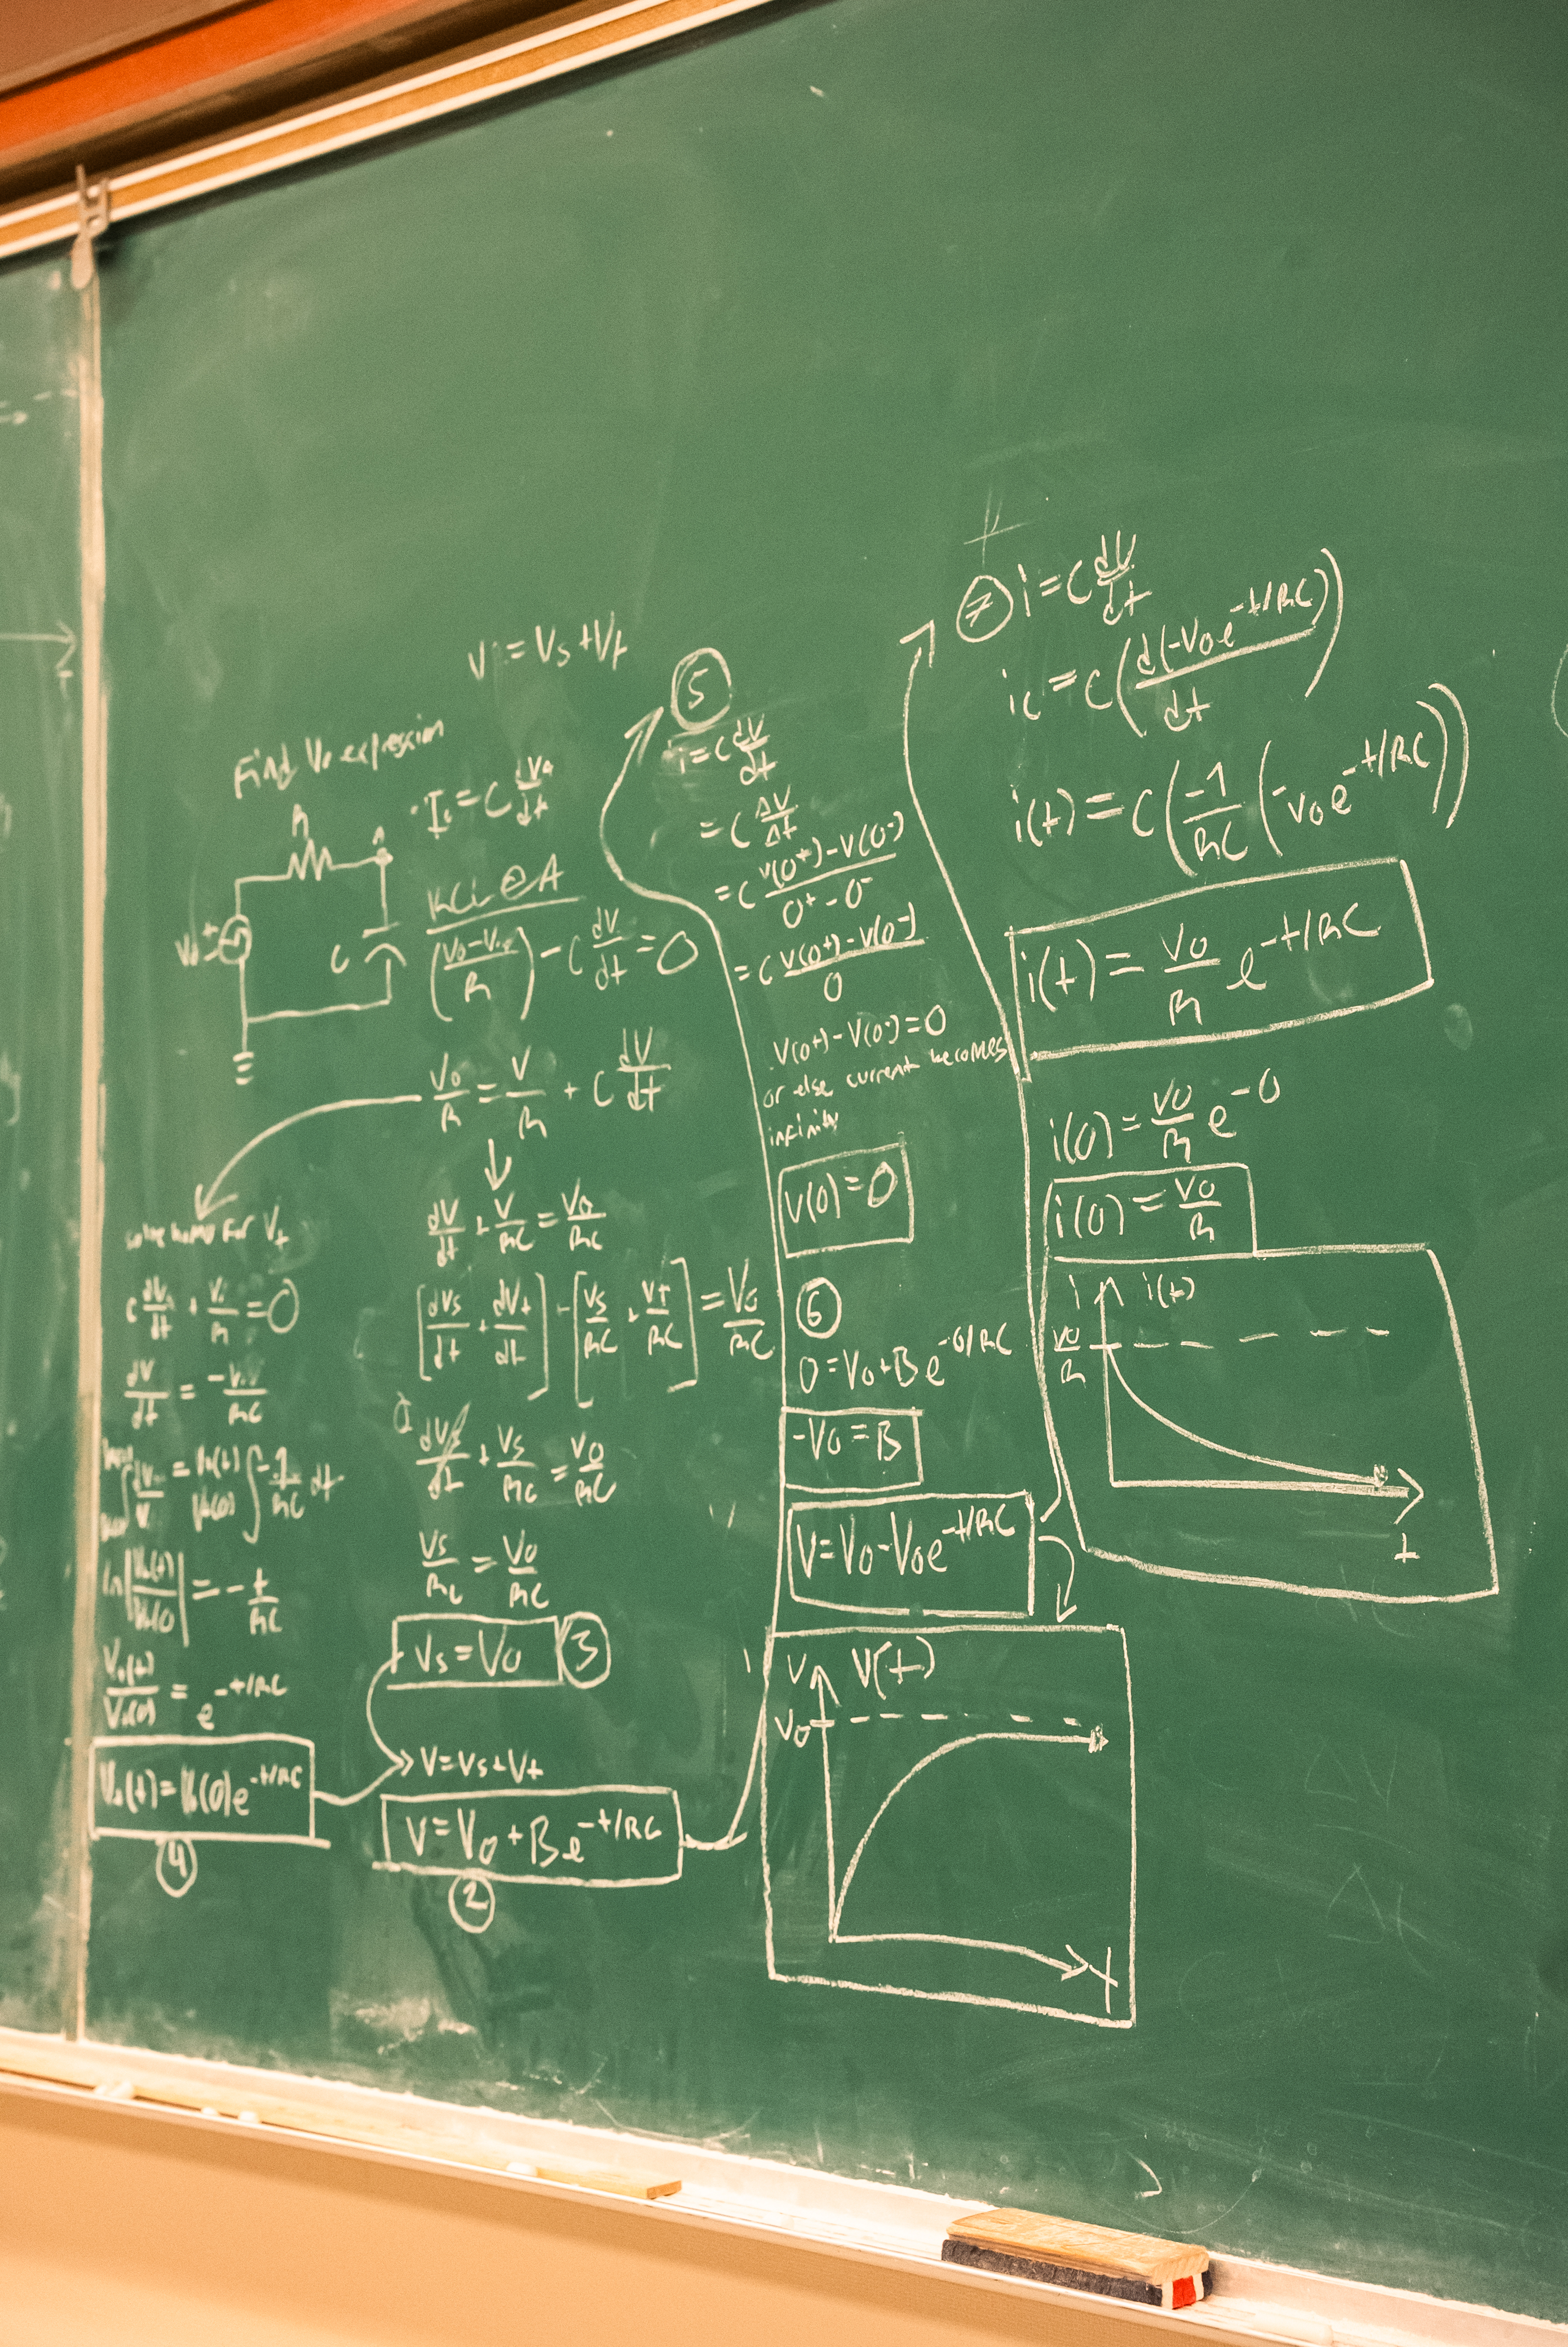 V = Vs + Vt
Find Vc expression
R
A
V₀
+
C
Ic = C dVc/dt
KCL @ A
(V₀ - Vc / R) - C dV/dt = 0
V₀/R = V/R + C dV/dt
dV/dt + V/RC = V₀/RC
[dVs/dt + dVt/dt] + [Vs/RC + Vt/RC] = V₀/RC
0
dVs/dt + Vs/RC = V₀/RC
Vs/RC = V₀/RC
Vs = V₀ ③
V = Vs + Vt
V = V₀ + Be^(-t/RC)
②
solve homo for Vt
C dVt/dt + Vt/R = 0
dV/dt = -V/RC
∫ dV/V = ∫ -1/RC dt
ln|Vt(t)/Vt(0)| = - t/RC
Vt(t)/Vt(0) = e^(-t/RC)
Vt(t) = Vt(0)e^(-t/RC)
④
⑤
i = C dV/dt
= C ΔV/Δt
= C V(0⁺) - V(0⁻) / 0⁺ - 0⁻
= C V(0⁺) - V(0⁻) / 0
V(0⁺) - V(0⁻) = 0
or else current becomes
infinity
V(0) = 0
⑥
0 = V₀ + Be^(-0/RC)
-V₀ = B
V = V₀ - V₀e^(-t/RC)
V V(t)
V₀
t
⑦ i = C dV/dt
ic = C(d(-V₀e^(-t/RC))/dt)
i(t) = C(-1/RC (-V₀e^(-t/RC)))
i(t) = V₀/R e^(-t/RC)
i(0) = V₀/R e^(-0)
i(0) = V₀/R
i i(t)
V₀/R
t